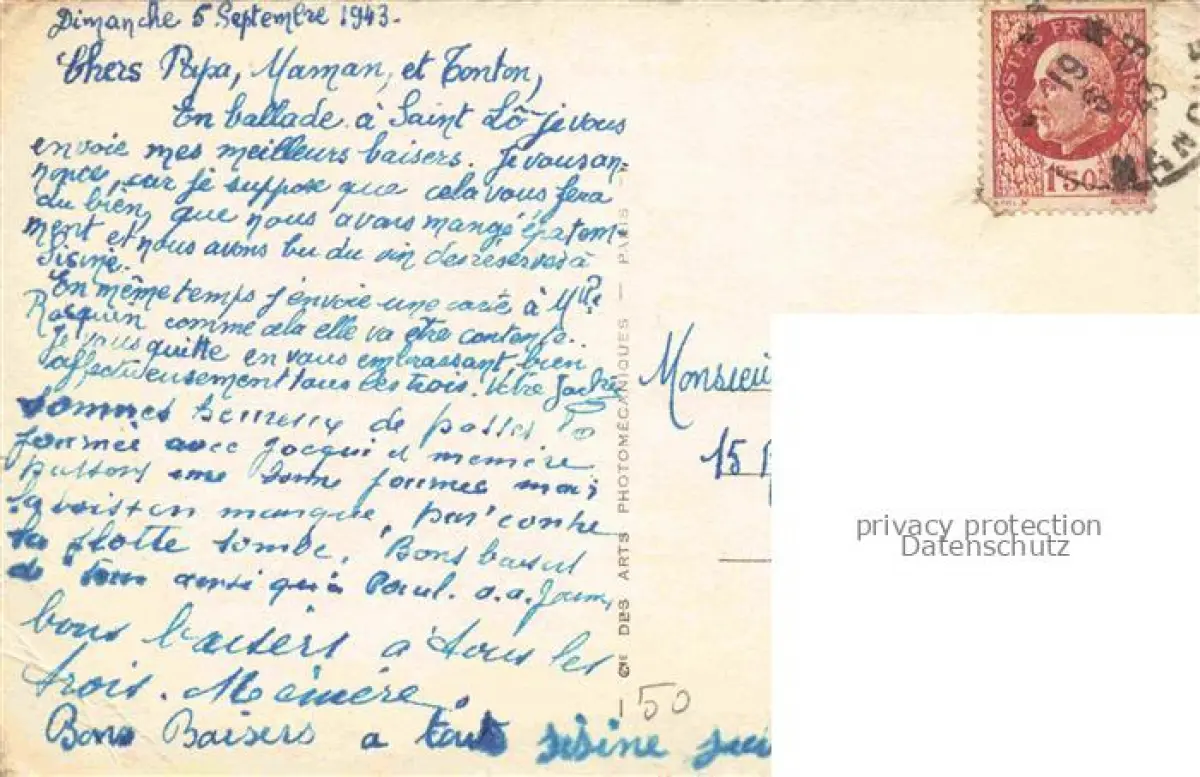 Dimanche 5 Septembre 1943.
Chers Papa, Maman, et Tonton,
En ballade à Saint Lô je vous
envoie mes meilleurs baisers. Je vous an-
nonce, car je suppose que cela vous fera
du bien, que nous avons mangé épatem-
ment et nous avons bu du vin des réserves à
Sisine.
En même temps j'envoie une carte à Mlle
comme cela elle va être contente.
Je vous quitte en vous embrassant bien
affectueusement tous les trois. Votre
sommes heureux de passer
journée avec Jacqui et memère
passons une bonne journée mais
manque, par contre
la flotte tombe. Bons baisers
de ainsi qu'à Paul.
bons baisers à tous les
trois. Mémère.
Bons Baisers a tous sisine
POSTES FRANÇAISES
1F50
Monsieur
15
CIE DES ARTS PHOTOMÉCANIQUES — PARIS
50
privacy protection
Datenschutz